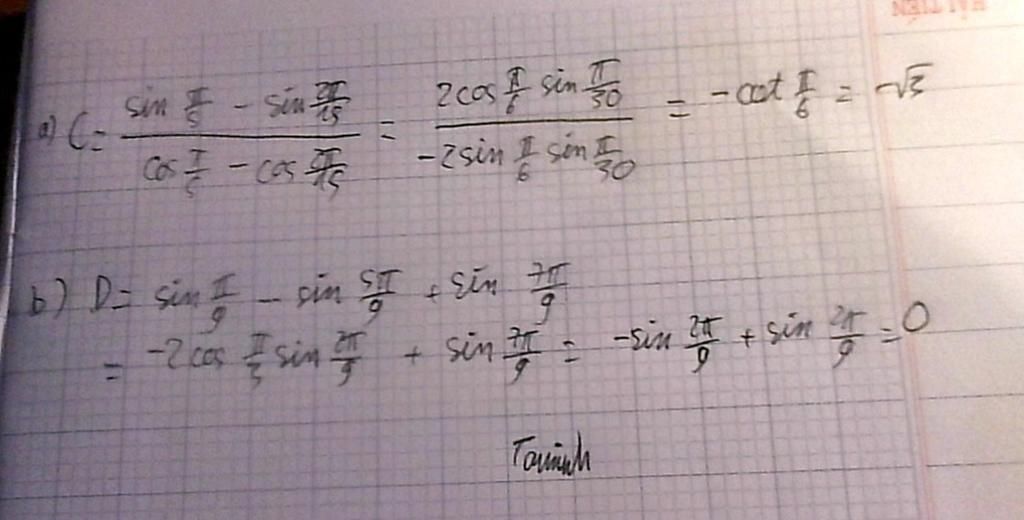 a) C = (sin π/5 − sin 2π/15) / (cos π/5 − cos 2π/15) = (2cos π/6 sin π/30) / (−2sin π/6 sin π/30) = −cot π/6 = −√3
b) D = sin π/9 − sin 5π/9 + sin 7π/9
= −2cos π/3 sin 2π/9 + sin 7π/9 = −sin 2π/9 + sin 2π/9 = 0